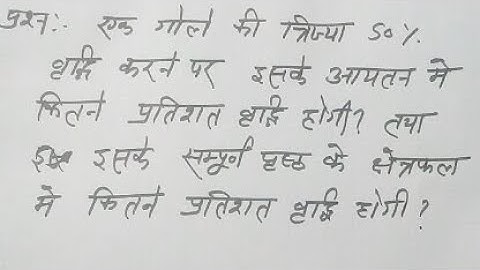 प्रश्न:. एक गोले की त्रिज्या 50%
वृद्धि करने पर इसके आयतन मे
कितने प्रतिशत वृद्धि होगी? तथा
इसके सम्पूर्ण पृष्ठ के क्षेत्रफल
मे कितने प्रतिशत वृद्धि होगी?